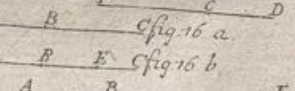 C D
B C fig 16 a.
B E C fig 16 b
A B